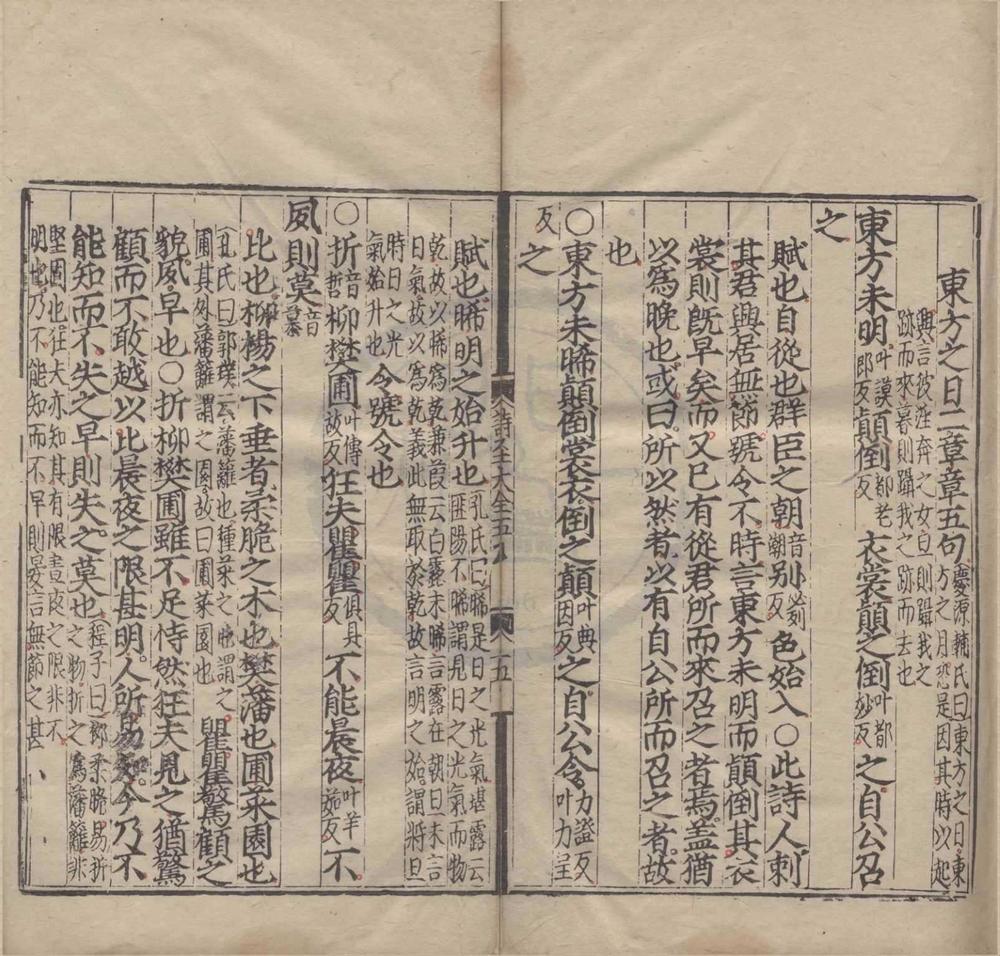 東方之日二章章五句慶源輔氏曰東方之日東方之月恐是因其時以起
興言彼淫奔之女旦則躡我之跡而來暮則躡我之跡而去也
東方未明叶謨郎反顛倒都老反衣裳顛之倒叶都妙反之自公召
之
賦也自從也群臣之朝音潮别必列反色始入○此詩人刺
其君興居無節號令不時言東方未明而顛倒其衣
裳則既早矣而又已有從君所而來召之者焉蓋猶
以為晚也或曰所以然者以有自公所而召之者故
也
○東方未晞顛倒裳衣倒之顛叶典因反之自公令力證反叶力呈
反之
詩經大全五 十五
賦也晞明之始升也孔氏曰晞是日之光氣堪露云匪陽不晞謂見日之光氣而物
乾故以晞為乾蒹葭云白露未晞言露在朝旦未言日氣故以為乾義此無取於乾故言明之始謂將旦
時日之光氣始升也令號令也
○折音哲柳樊圃叶博故反狂夫瞿瞿俱具反不能晨夜叶羊茹反不
夙則莫音暮
比也柳楊之下垂者柔脆之木也樊藩也圃菜園也
孔氏曰郭璞云藩籬也種菜之地謂之圃其外藩籬謂之園故曰圃菜園也瞿瞿驚顧之
貌夙早也○折柳樊圃雖不足恃然狂夫見之猶驚
顧而不敢越以比晨夜之限甚明人所易知今乃不
能知而不失之早則失之莫也程子曰柳柔脆易折之物折之為藩籬非
堅固也狂夫亦知其有限晝夜之限非不明也乃不能知而不早則晏言無節之甚